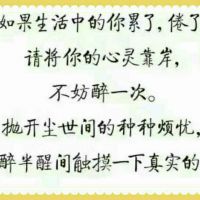 如果生活中的你累了，倦了
请将你的心灵靠岸，
不妨醉一次。
抛开尘世间的种种烦忧，
醉半醒间触摸一下真实的